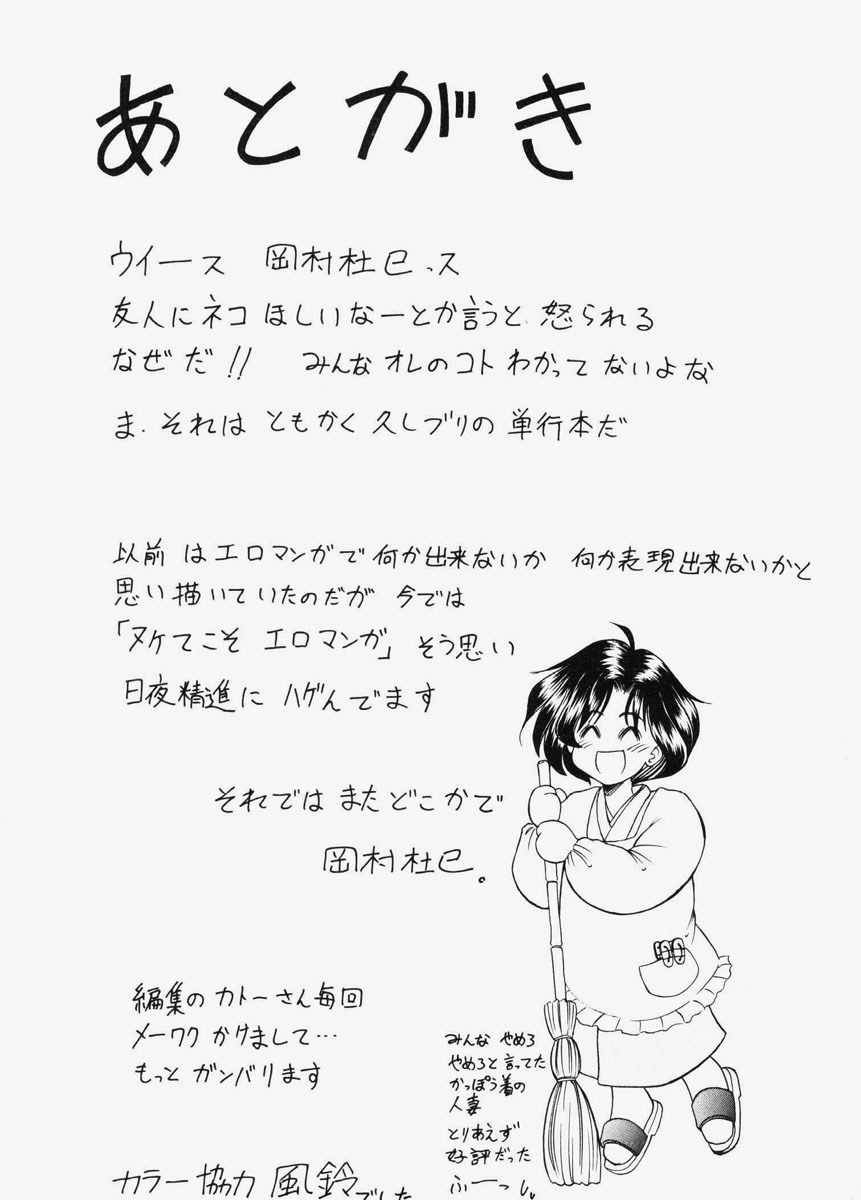 あとがき
ウイース 岡村杜巳っス
友人にネコほしいなーとか言うと、怒られる
なぜだ!! みんなオレのコトわかってないよな
ま、それはともかく久しブリの単行本だ
以前はエロマンガで何か出来ないか 何か表現出来ないかと
思い描いていたのだが 今では
「ヌケてこそ エロマンガ」そう思い
日夜精進にハゲんでます
それでは またどこかで
岡村杜巳。
編集のカトーさん毎回
メーワクかけまして…
もっとガンバリます
みんな やめろ
やめろと言ってた
かっぽう着の
人妻
とりあえず
好評だった
ふーっ
カラー協力 風鈴でした